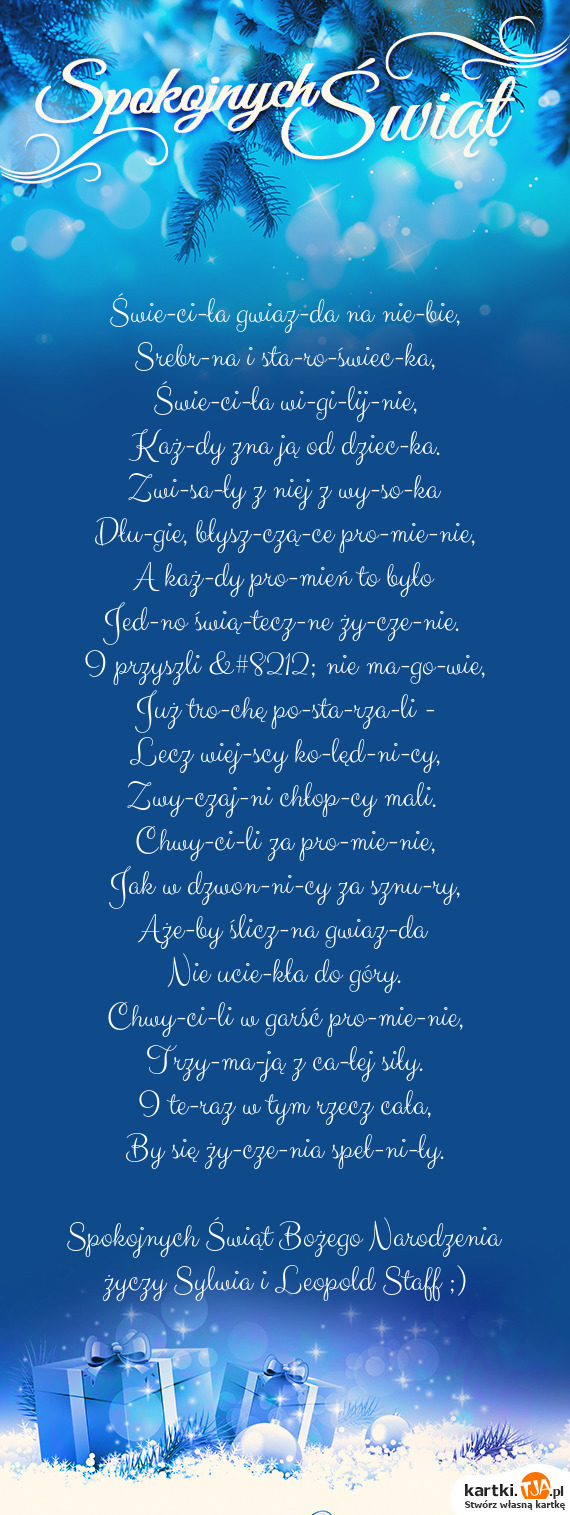 Spokojnych Świąt
Świe-ci-ła gwiaz-da na nie-bie,
Srebr-na i sta-ro-świec-ka,
Świe-ci-ła wi-gi-lij-nie,
Każ-dy zna ją od dziec-ka.
Zwi-sa-ły z niej z wy-so-ka
Dłu-gie, błysz-czą-ce pro-mie-nie,
A każ-dy pro-mień to było
Jed-no świą-tecz-ne ży-cze-nie.
I przyszli &#8212; nie ma-go-wie,
Już tro-chę po-sta-rza-li -
Lecz wiej-scy ko-lęd-ni-cy,
Zwy-czaj-ni chłop-cy mali.
Chwy-ci-li za pro-mie-nie,
Jak w dzwon-ni-cy za sznu-ry,
Aże-by ślicz-na gwiaz-da
Nie ucie-kła do góry.
Chwy-ci-li w garść pro-mie-nie,
Trzy-ma-ją z ca-łej siły.
I te-raz w tym rzecz cała,
By się ży-cze-nia speł-ni-ły.
Spokojnych Świąt Bożego Narodzenia
życzy Sylwia i Leopold Staff ;)
kartki.TJA.pl
Stwórz własną kartkę